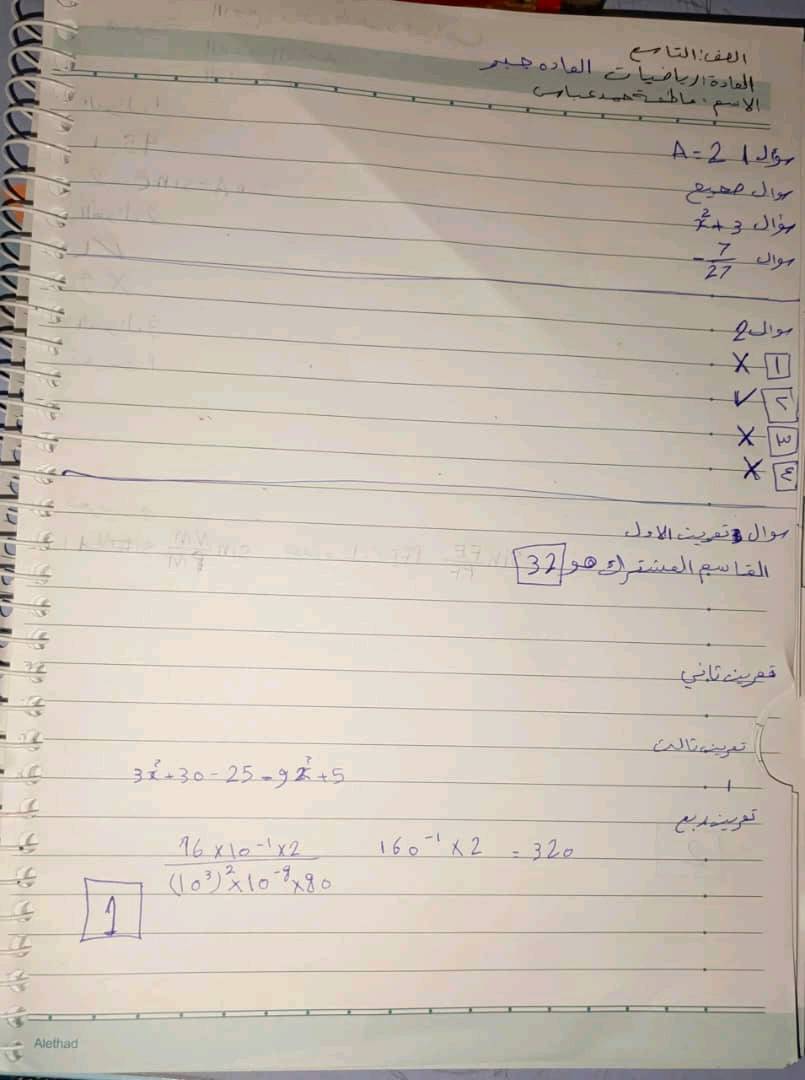 الصف: التاسع
المادة: رياضيات المادة جبر
الاسم: فاطمة حمد عباس
سؤال 1 A = 2
سوال صحيح
سؤال x² + 3
سوال -7/27
سوال 2
1 X
٢ ✓
٣ X
٤ X
سوال 3 تمرين الاول
القاسم المشترك هو 32
تمرين تاني
تمرين تالت
3x² + 30 - 25 = 9x² + 5
1
تمرين ربع
16 x 10⁻¹ x 2 / (10³)² x 10⁻⁸ x 80 160⁻¹ x 2 = 320
1
Alethad